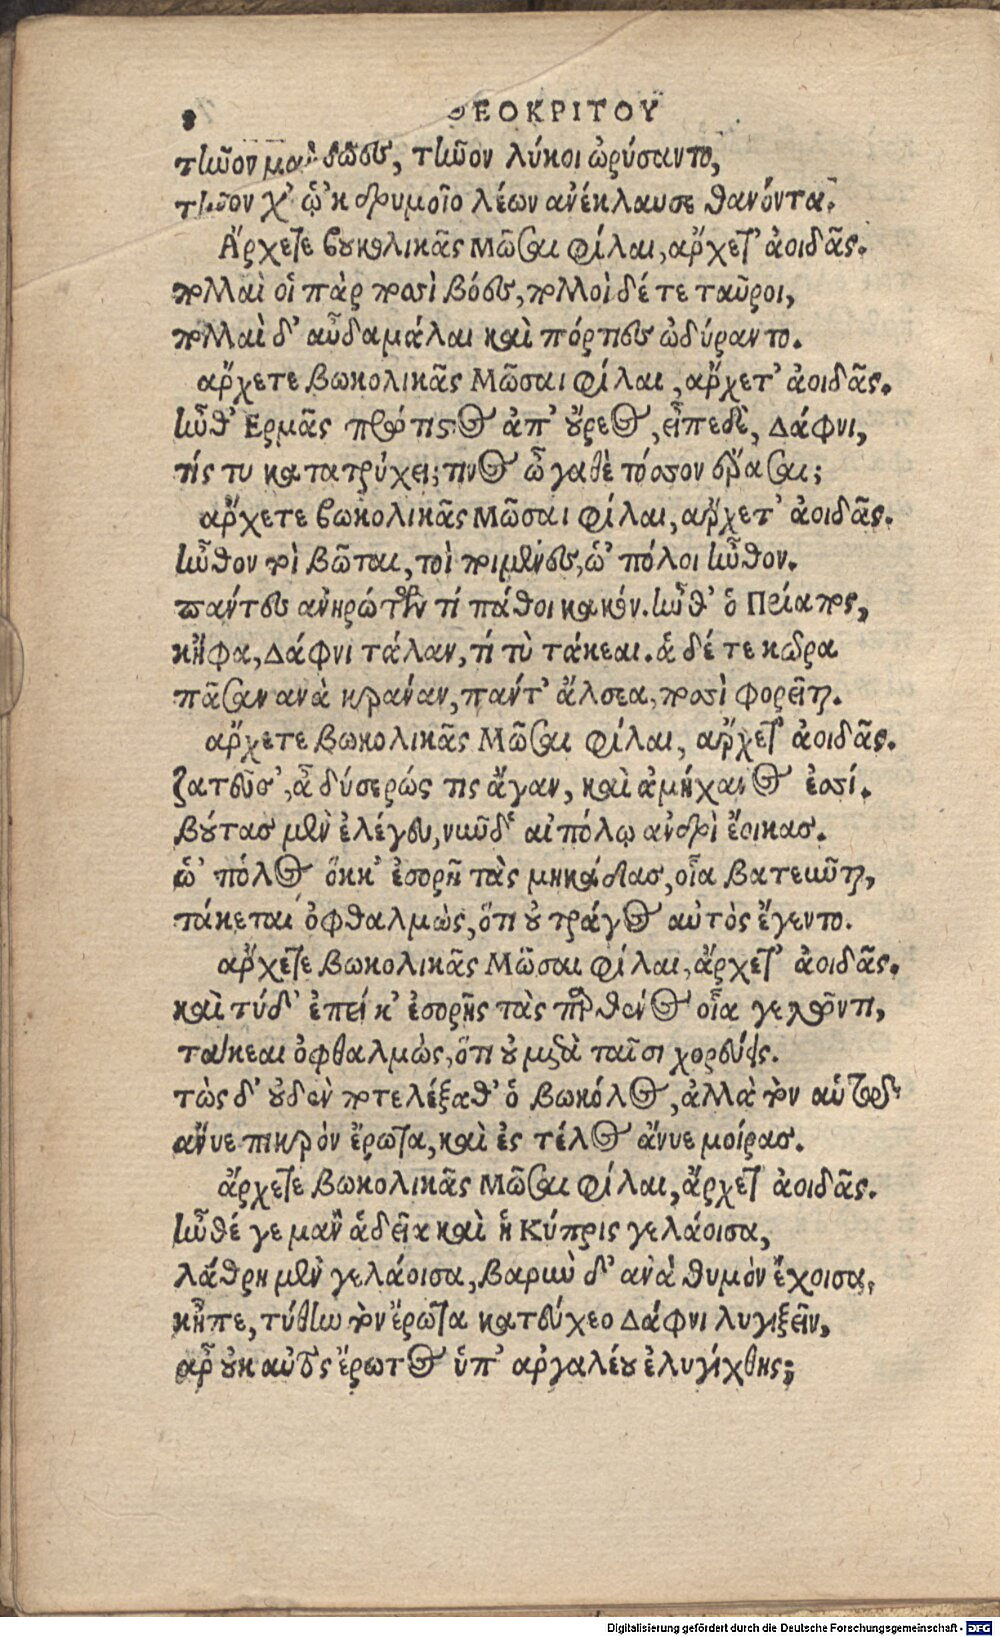 8 ΘΕΟΚΡΙΤΟΥ
τῆνον μὰν θῶες, τῆνον λύκοι ὠρύσαντο,
τῆνον χ' ᾧ'κ δρυμοῖο λέων ἀνέκλαυσε θανόντα.
Ἄρχετε βουκολικᾶς Μῶσαι φίλαι, ἄρχετ' ἀοιδᾶς.
πολλαὶ οἱ πὰρ ποσὶ βόες, πολλοὶ δέ τε ταῦροι,
πολλαὶ δ' αὖ δαμάλαι καὶ πόρτιες ὠδύραντο.
ἄρχετε βωκολικᾶς Μῶσαι φίλαι, ἄρχετ' ἀοιδᾶς.
ἦνθ' Ἑρμᾶς πράτιστος ἀπ' ὤρεος, εἶπε δὲ, Δάφνι,
τίς τυ κατατρύχει; τίνος ὦ γαθὲ τόσσον ἐρᾶσαι;
ἄρχετε βωκολικᾶς Μῶσαι φίλαι, ἄρχετ' ἀοιδᾶς.
ἦνθον τοὶ βῶται, τοὶ ποιμένες, ᾡ' πόλοι ἦνθον.
παντες ἀνηρώτευν τί πάθοι κακόν. ἦνθ' ὁ Πρίαπος,
κἤφα, Δάφνι τάλαν, τί τὺ τάκεαι. ἁ δέ τε κώρα
πᾶσαν ἀνὰ κράναν, παντ' ἄλσεα, ποσὶ φορεῖται.
ἄρχετε βωκολικᾶς Μῶσαι φίλαι, ἄρχετ' ἀοιδᾶς.
ζατεῦσ', ἆ δύσερώς τις ἄγαν, καὶ ἀμήχανος ἐσσί.
βούτας μὲν ἐλέγευ, νῦν δ' αἰπόλῳ ἀνδρὶ ἔοικας.
ᾡ' πόλος ὅκκ' ἐσορῇ τὰς μηκάδας, οἷα βατεῦνται,
τάκεται ὀφθαλμὼς, ὅτι οὐ τράγος αὐτὸς ἔγεντο.
ἄρχετε βωκολικᾶς Μῶσαι φίλαι, ἄρχετ' ἀοιδᾶς.
καὶ τύ δ' ἐπεί κ' ἐσορῇς τὰς παρθένος οἷα γελῶντι,
τάκεαι ὀφθαλμὼς, ὅτι οὐ μετὰ ταῖσι χορεύεις.
τὼς δ' οὐδὲν ποτελέξαθ' ὁ βωκόλος, ἀλλὰ τὸν αὑτοῦ
ἄνυε πικρὸν ἔρωτα, καὶ ἐς τέλος ἄνυε μοίρας.
ἄρχετε βωκολικᾶς Μῶσαι φίλαι, ἄρχετ' ἀοιδᾶς.
ἦνθέ γε μὰν ἁδεῖα καὶ ἡ Κύπρις γελάοισα,
λάθρη μὲν γελάοισα, βαρὺν δ' ἀνὰ θυμὸν ἔχοισα,
κἦπε, τύ θην τὸν ἔρωτα κατεύχεο Δάφνι λυγιξεῖν,
ἆρ' οὐκ αὐτὸς ἔρωτος ὑπ' ἀργαλέου ἐλυγίχθης;
Digitalisierung gefördert durch die Deutsche Forschungsgemeinschaft - DFG